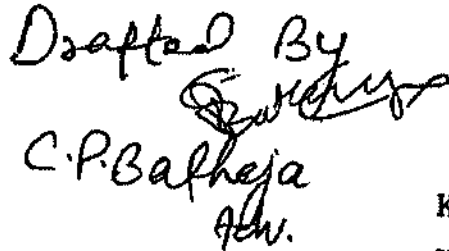 Drafted By
C.P. Batheja
Adv.
K